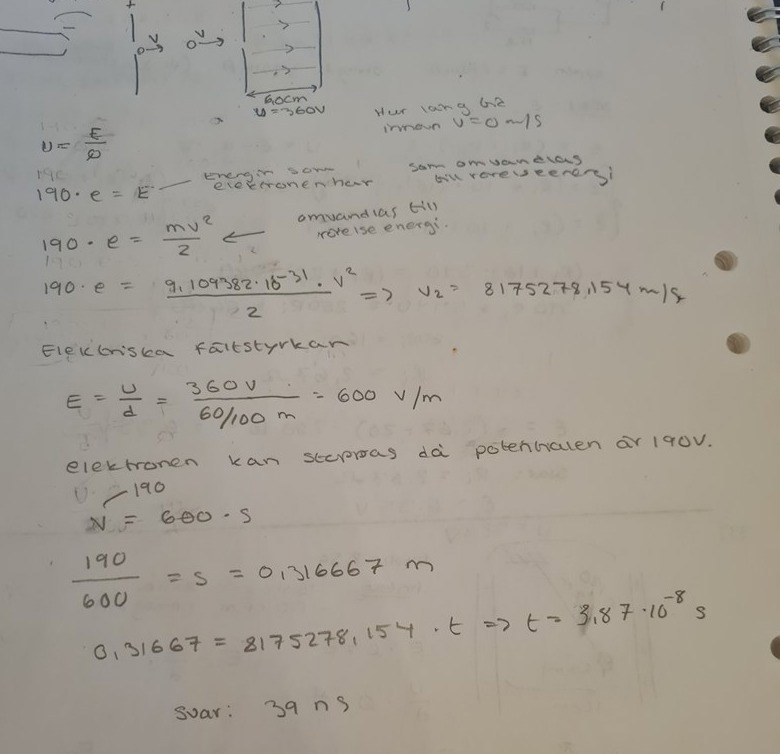 +
v
v
60cm
U=360V
Hur lång tid
innan v=0 m/s
U = E/Q
190 · e = E
Energin som
elektronen har
som omvandlas
till rörelseenergi
190 · e = mv²/2
omvandlas till
rörelse energi.
190 · e = 9,109382·10⁻³¹ · v²/2 => v₂ = 8175278,154 m/s
Elektriska fältstyrkan
E = U/d = 360 V / 60/100 m = 600 V/m
elektronen kan stoppas då potentialen är 190V.
190
U = 600 · s
190/600 = s = 0,316667 m
0,31667 = 8175278,154 · t => t = 3,87 · 10⁻⁸ s
svar: 39 ns